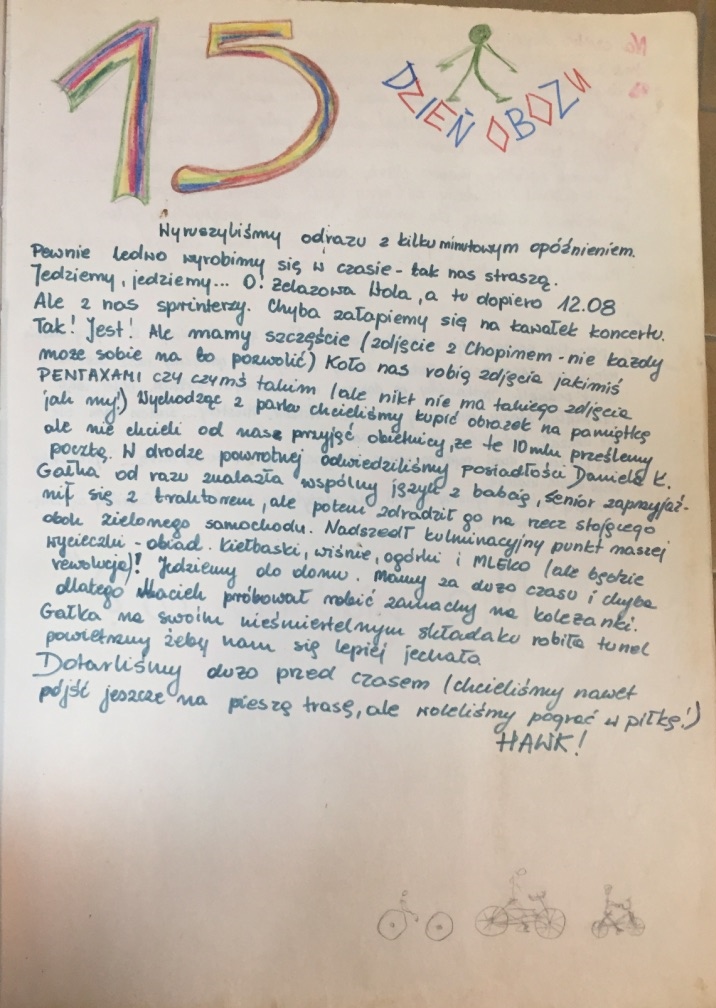 15 DZIEŃ OBOZU
Wyruszyliśmy odrazu z kilku minutowym opóźnieniem.
Pewnie ledwo wyrobimy się w czasie - tak nas straszą.
Jedziemy, jedziemy... O! Żelazowa Wola, a tu dopiero 12.08
Ale z nas sprinterzy. Chyba załapiemy się na kawałek koncertu.
Tak! Jest! Ale mamy szczęście (zdjęcie z Chopinem - nie każdy
może sobie na to pozwolić) Koło nas robią zdjęcia jakimiś
PENTAXAMI czy czymś takim (ale nikt nie ma takiego zdjęcia
jak my!) Wychodząc z parku chcieliśmy kupić obrazek na pamiątkę
ale nie chcieli od nas przyjąć obietnicy, że te 10 mln prześlemy
pocztą. W drodze powrotnej odwiedziliśmy posiadłości Daniela K.
Gałka od razu znalazła wspólny język z babcią, senior zaprzyjaź-
nił się z traktorem, ale potem zdradził go na rzecz stojącego
obok zielonego samochodu. Nadszedł kulminacyjny punkt naszej
wycieczki - obiad. Kiełbaski, wiśnie, ogórki i MLEKO (ale będzie
rewolucja)! Jedziemy do domu. Mamy za dużo czasu i chyba
dlatego Maciek próbował robić zamachy na koleżanki.
Gałka na swoim nieśmiertelnym składaku robiła tunel
powietrzny żeby nam się lepiej jechała
Dotarliśmy dużo przed czasem (chcieliśmy nawet
pójść jeszcze na pieszą trasę, ale woleliśmy pograć w piłkę!)
HAWK!